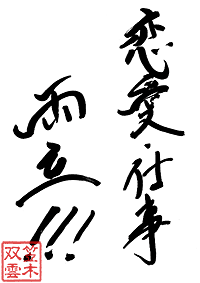 恋愛・仕事
両立!!!
笠木
双雲